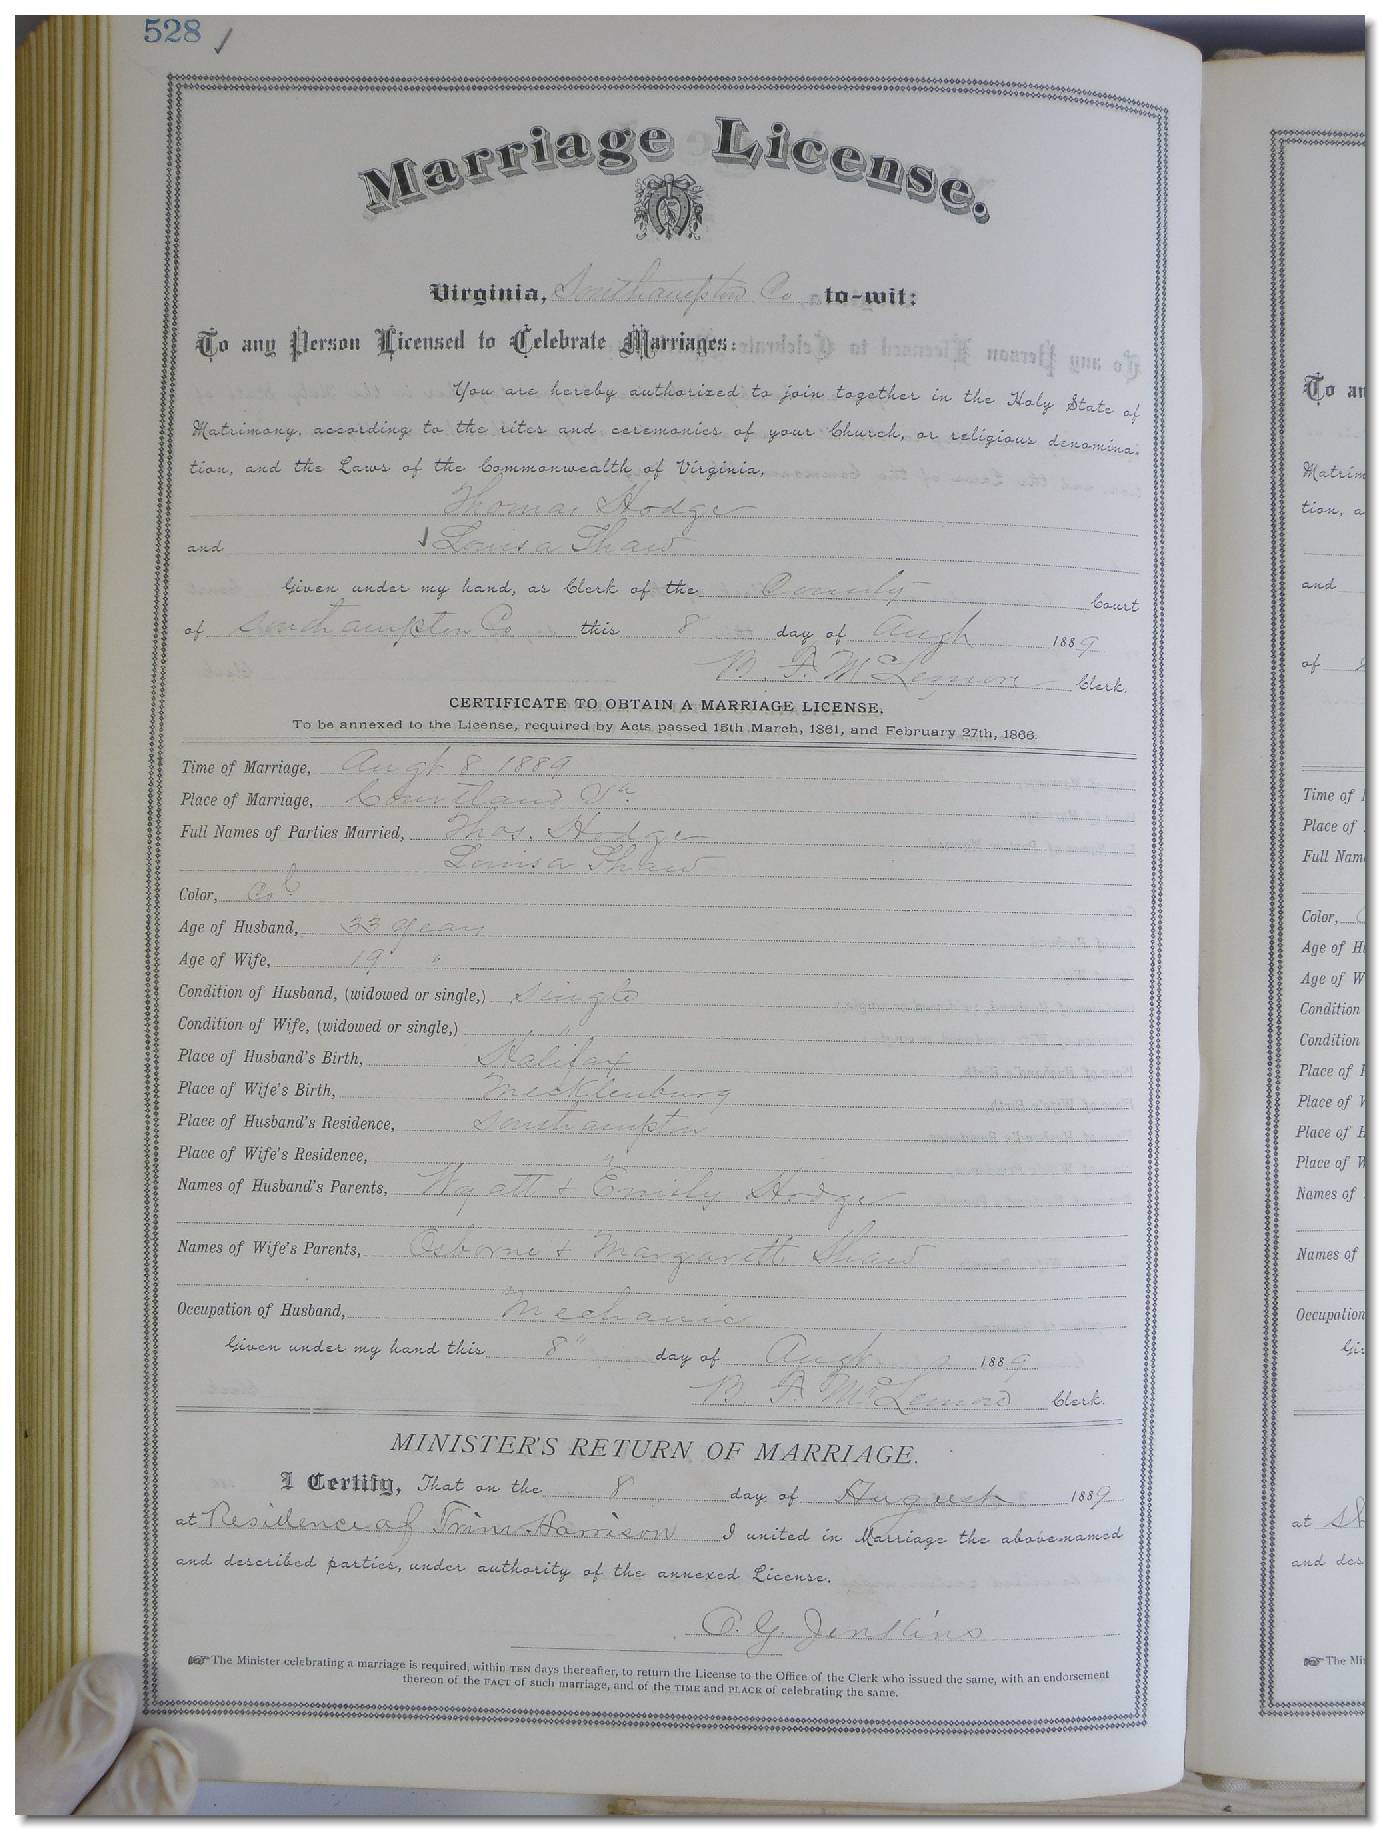 528
Marriage License.
Virginia, Southampton Co to-wit:
To any Person Licensed to Celebrate Marriages:
You are hereby authorized to join together in the Holy State of
Matrimony, according to the rites and ceremonies of your Church, or religious denomina-
tion, and the Laws of the Commonwealth of Virginia,
Thomas Hodge
and Louisa Shaw
Given under my hand, as Clerk of the County Court
of Southampton Co this 8 day of Augt 1889
B. F. McLemore Clerk.
CERTIFICATE TO OBTAIN A MARRIAGE LICENSE,
To be annexed to the License, required by Acts passed 15th March, 1861, and February 27th, 1866.
Time of Marriage, Augt 8 1889
Place of Marriage, Courtland Va
Full Names of Parties Married, Thos. Hodge
Louisa Shaw
Color, Col
Age of Husband, 33 years
Age of Wife, 19 "
Condition of Husband, (widowed or single,) Single
Condition of Wife, (widowed or single,) "
Place of Husband's Birth, Halifax
Place of Wife's Birth, Mecklenburg
Place of Husband's Residence, Southampton
Place of Wife's Residence, "
Names of Husband's Parents, Wyatt & Emily Hodge
Names of Wife's Parents, Osborne & Margarett Shaw
Occupation of Husband, Mechanic
Given under my hand this 8" day of Augt 1889
B. F. McLemore Clerk.
MINISTER'S RETURN OF MARRIAGE.
I Certify, That on the 8 day of August 1889
at Residence of Harrison I united in Marriage the above-named
and described parties, under authority of the annexed License.
Jenkins
The Minister celebrating a marriage is required, within TEN days thereafter, to return the License to the Office of the Clerk who issued the same, with an endorsement
thereon of the FACT of such marriage, and of the TIME and PLACE of celebrating the same.
To an
Matrim
tion, a
and
of
Time of
Place of
Full Nam
Color,
Age of H
Age of W
Condition
Condition
Place of
Place of
Place of
Place of
Names of
Names of
Occupation
Gi
at
and des
The Mi